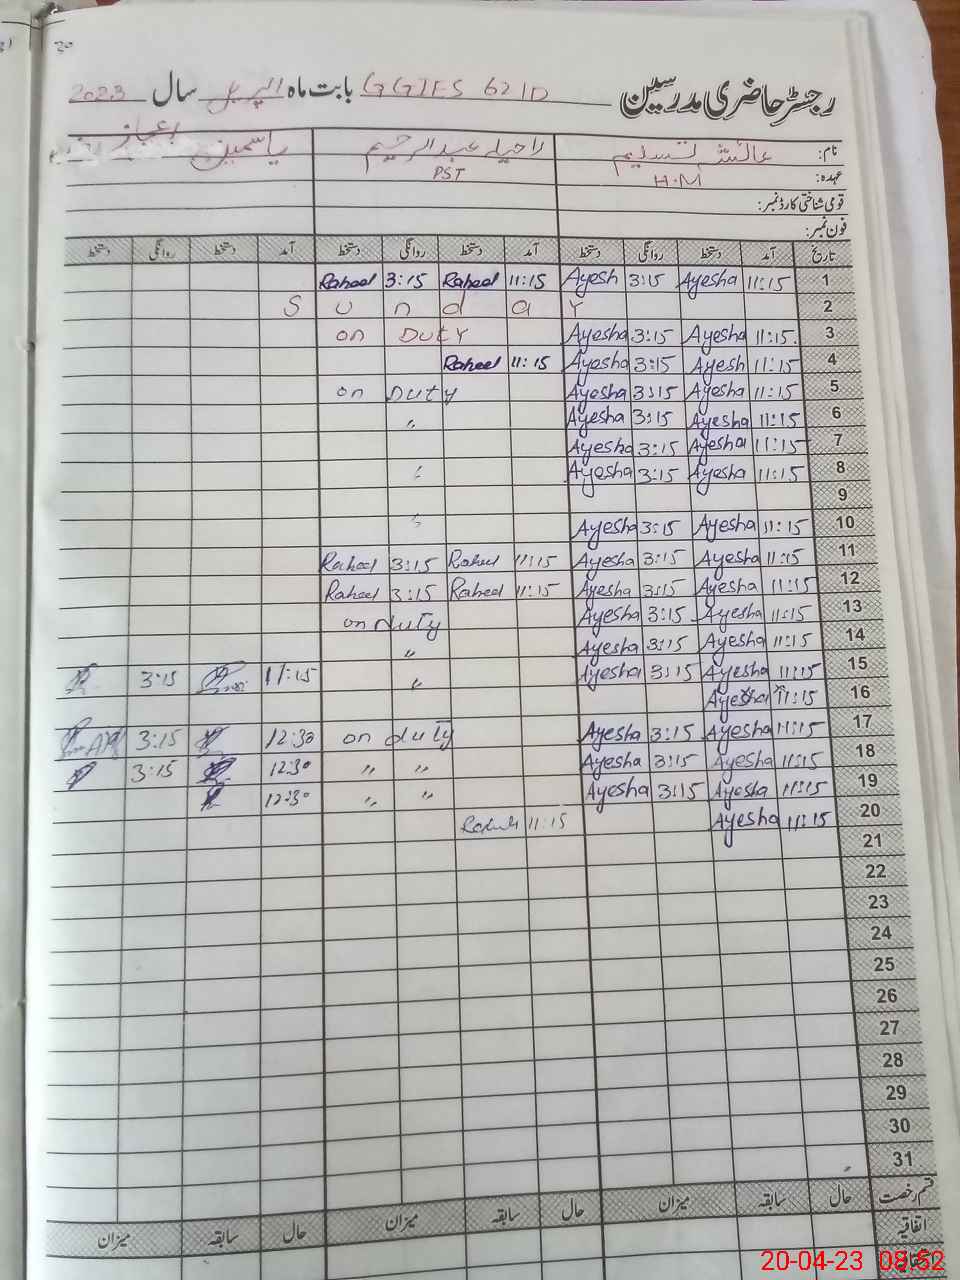 20
رجسٹر حاضری مدرسین GGIES 621D بابت ماہ اپریل سال 2023
نام: عائشہ تسلیم راحیلہ عبدالرحیم یاسمین اعجاز
عہدہ: H.M PST
قومی شناختی کارڈ نمبر:
فون نمبر:
تاریخ آمد دستخط روانگی دستخط آمد دستخط روانگی دستخط آمد دستخط روانگی دستخط
Raheel 3:15 Raheel 11:15 Ayesh 3:15 Ayesha 11:15 1
S u n d a y 2
on Duty Ayesha 3:15 Ayesha 11:15. 3
Raheel 11:15 Ayesha 3:15 Ayesh 11:15 4
on Duty Ayesha 3:15 Ayesha 11:15 5
〃 Ayesha 3:15 Ayesha 11:15 6
Ayesha 3:15 Ayesha 11:15 7
〃 Ayesha 3:15 Ayesha 11:15 8
9
〃 Ayesha 3:15 Ayesha 11:15 10
Raheel 3:15 Raheel 11:15 Ayesha 3:15 Ayesha 11:15 11
Raheel 3:15 Raheel 11:15 Ayesha 3:15 Ayesha 11:15 12
on duty Ayesha 3:15 Ayesha 11:15 13
〃 Ayesha 3:15 Ayesha 11:15 14
3:15 11:15 〃 Ayesha 3:15 Ayesha 11:15 15
Ayesha 11:15 16
3:15 12:30 on duty Ayesha 3:15 Ayesha 11:15 17
3:15 12:30 〃 〃 Ayesha 3:15 Ayesha 11:15 18
12:30 〃 〃 Ayesha 3:15 Ayesha 11:15 19
11:15 Ayesha 11:15 20
21
22
23
24
25
26
27
28
29
30
31
قسم رخصت حال سابقہ میزان حال سابقہ میزان حال سابقہ میزان
اتفاقیہ
20-04-23 08:52